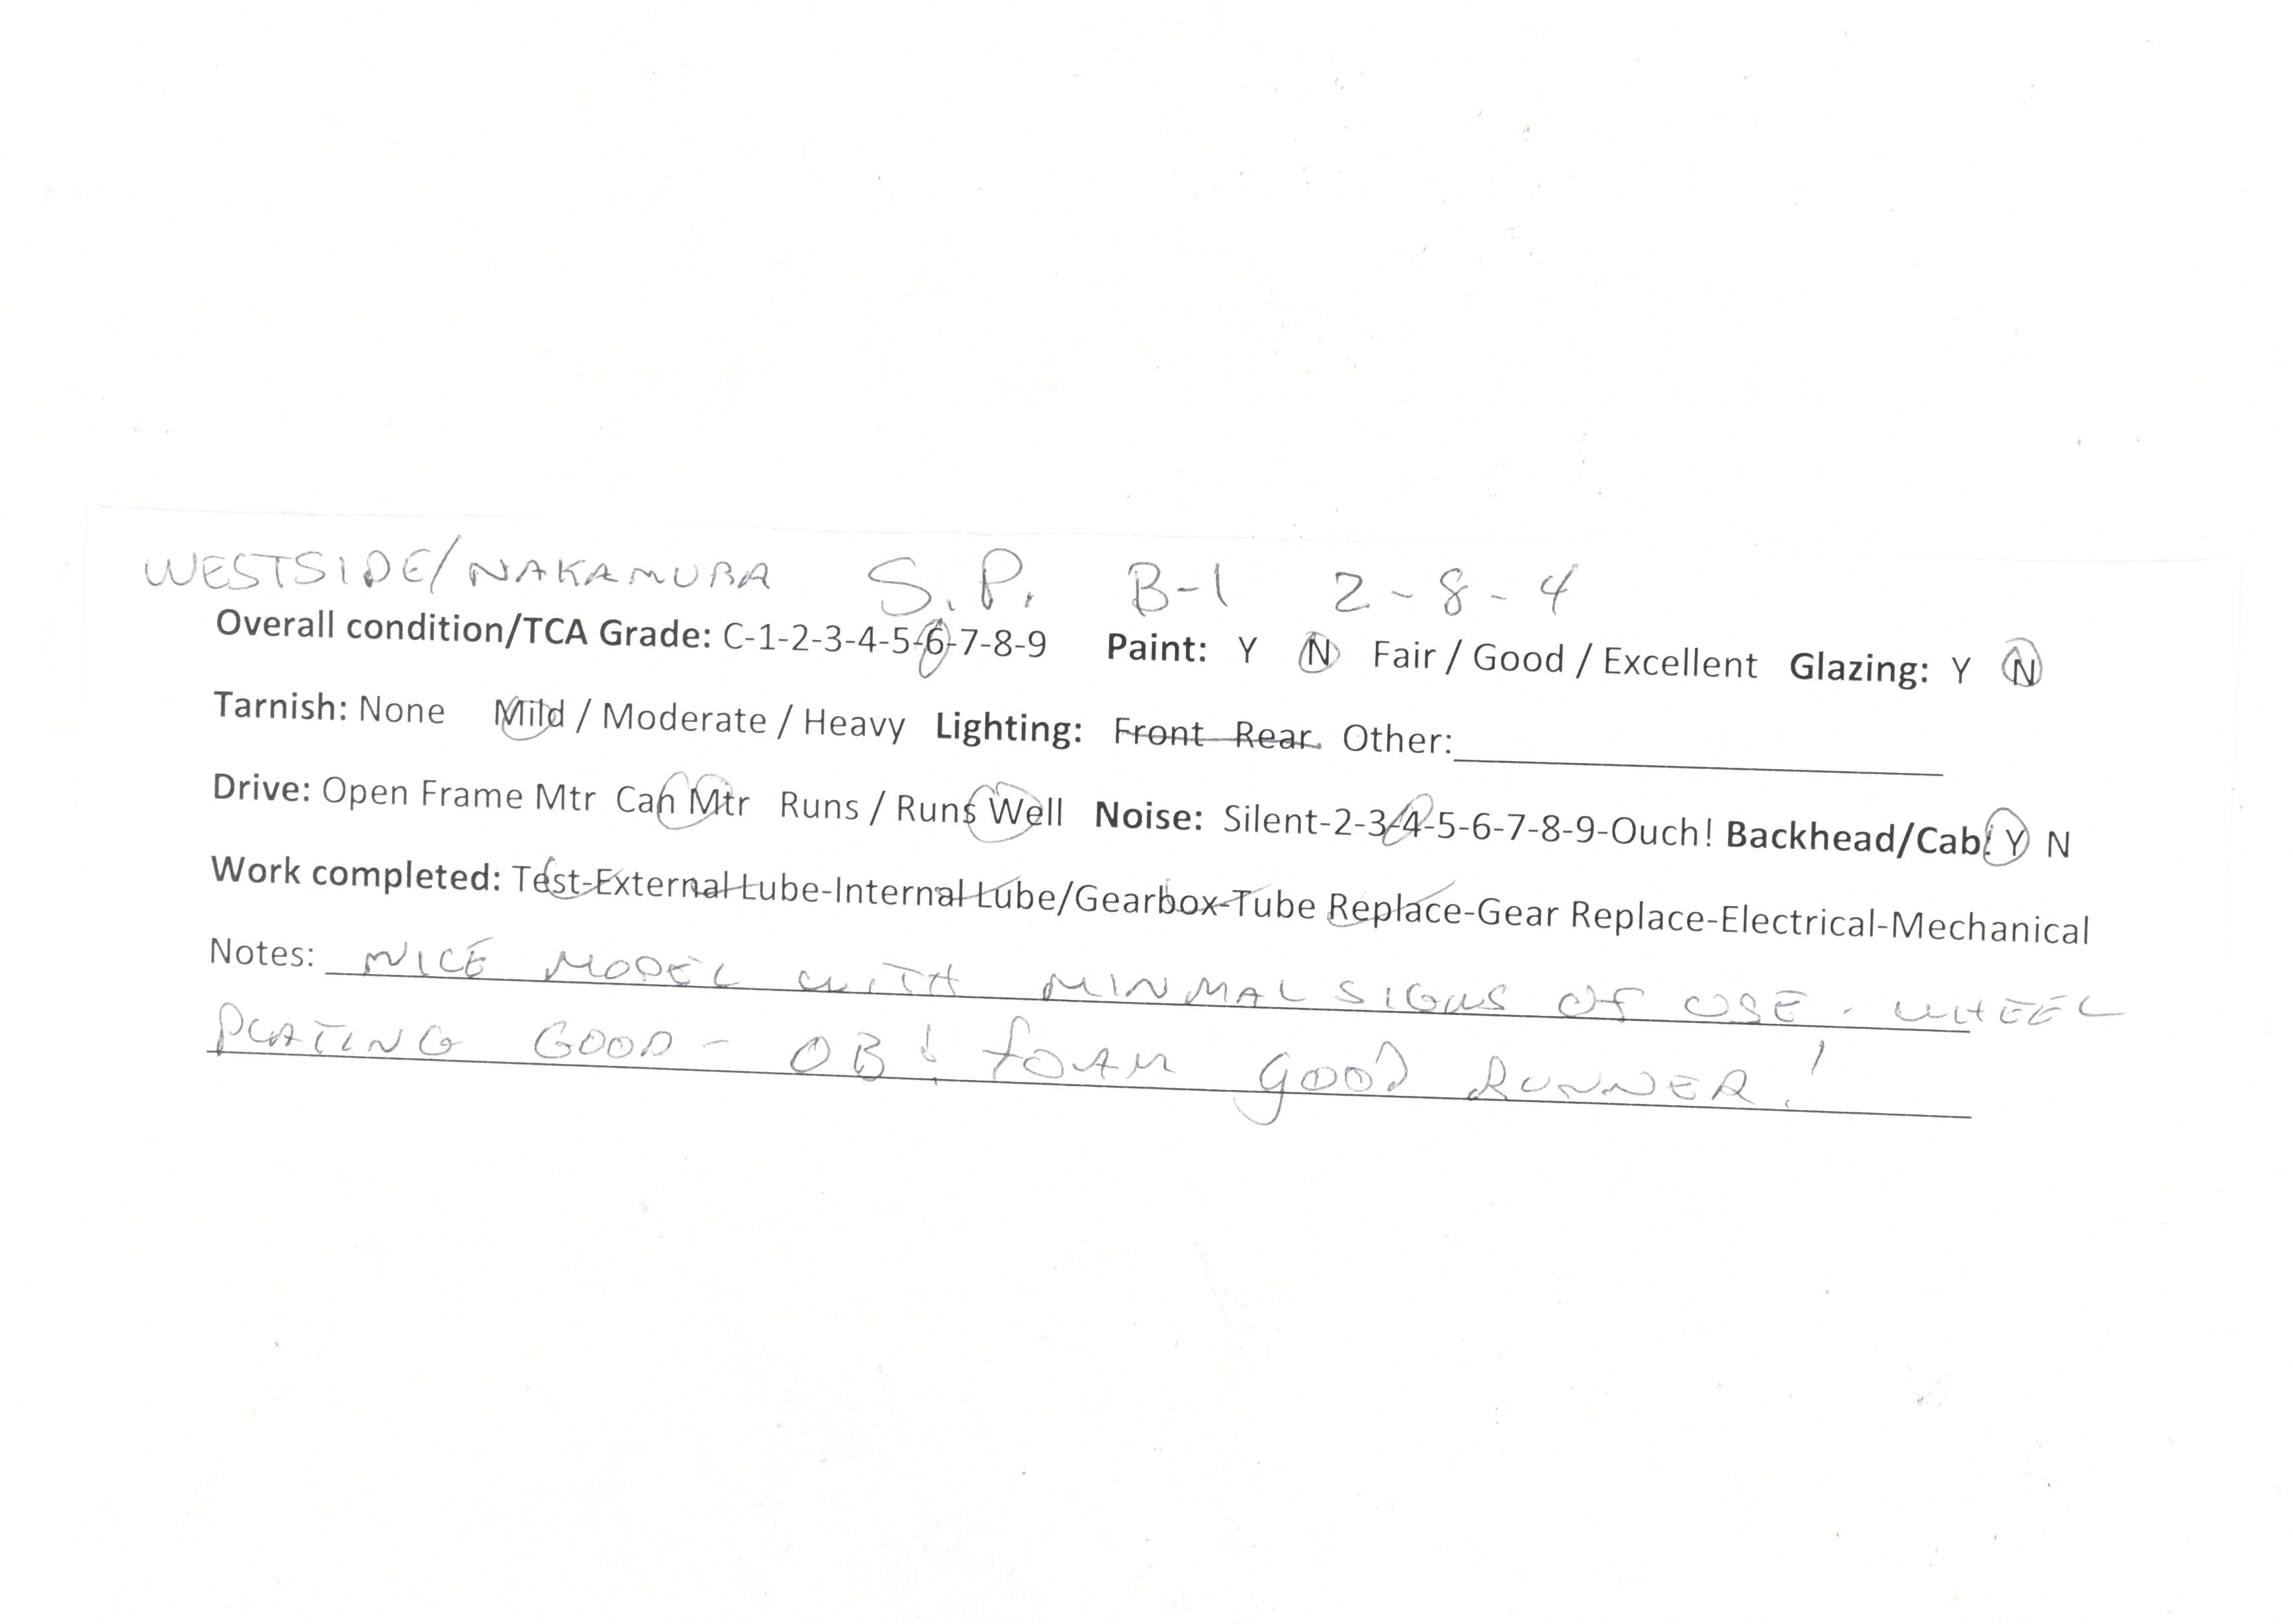 WESTSIDE/NAKAMURA S.P. B-1 2-8-4
Overall condition/TCA Grade: C-1-2-3-4-5-6-7-8-9 Paint: Y N Fair / Good / Excellent Glazing: Y N
Tarnish: None Mild / Moderate / Heavy Lighting: Front Rear Other:
Drive: Open Frame Mtr Can Mtr Runs / Runs Well Noise: Silent-2-3-4-5-6-7-8-9-Ouch! Backhead/Cab: Y N
Work completed: Test-External Lube-Internal Lube/Gearbox-Tube Replace-Gear Replace-Electrical-Mechanical
Notes: NICE MODEL WITH MINMAL SIGNS OF USE - WHEEL
PLATING GOOD - OB & FOAM GOOD RUNNER!